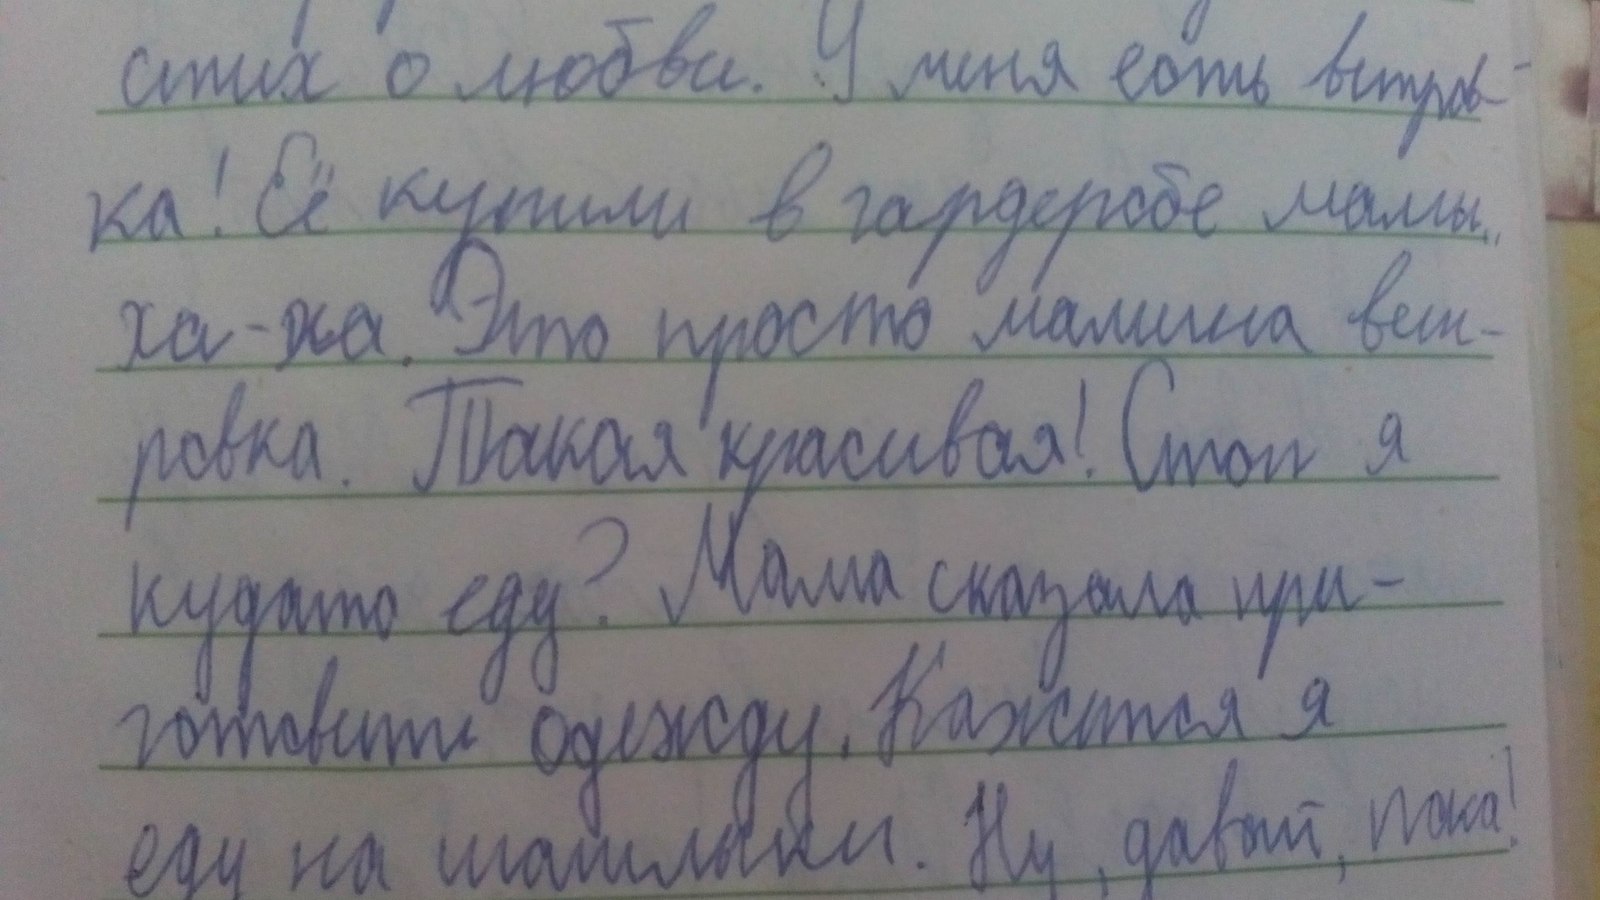 стих о любви. У меня есть ветров-
ка! Её купили в гардеробе мамы..
ха-ха. Это просто мамина вет-
ровка. Такая красивая! Стоп я
кудато еду? Мама сказала при-
готовить одежду. Кажится я
еду на шашлыки. Ну, давай, пока!